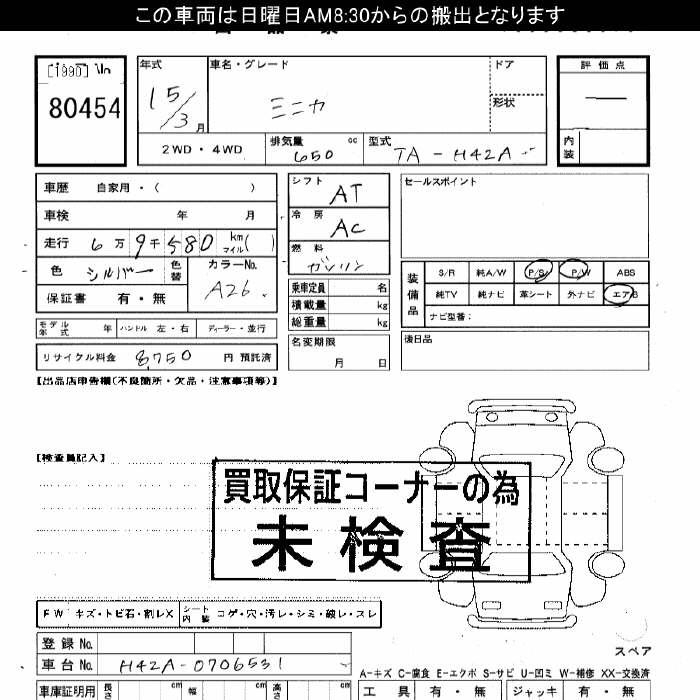 この車両は日曜日AM8:30からの搬出となります
[1990] \ln
80454
年式 15/3 月
車名・グレード ミニカ
ドア
形状
評価点
―
内装
2WD・4WD
排気量 650 cc
型式 TA-H42A-
車歴 自家用・( )
車検 年 月
走行 6万9千580 km マイル( )
色 シルバー 色替
カラーNo. A26.
保証書 有・無
モデル年式 年 ハンドル 左・右 ディーラー・並行
リサイクル料金 8,750 円 預託済
シフト AT
冷房 AC
燃料 ガソリン
乗車定員 名
積載量 kg
総重量 kg
名変期限
月 日
セールスポイント
装備品
S/R 純A/W P/S P/W ABS
純TV 純ナビ 革シート 外ナビ エアB
ナビ型番:
後日品
【出品店申告欄(不良箇所・欠品・注意事項等)】
【検査員記入】
買取保証コーナーの為
未検査
FW キズ・トビ石・割レX シート内装 コゲ・穴・汚レ・シミ・破レ・スレ
登録No.
車台No. H42A-0706531
スペア
A-キズ C-腐食 E-エクボ S-サビ U-凹ミ W-補修 XX-交換済
車庫証明用 長さ cm 幅 cm 高さ cm
工具 有・無 ジャッキ 有・無